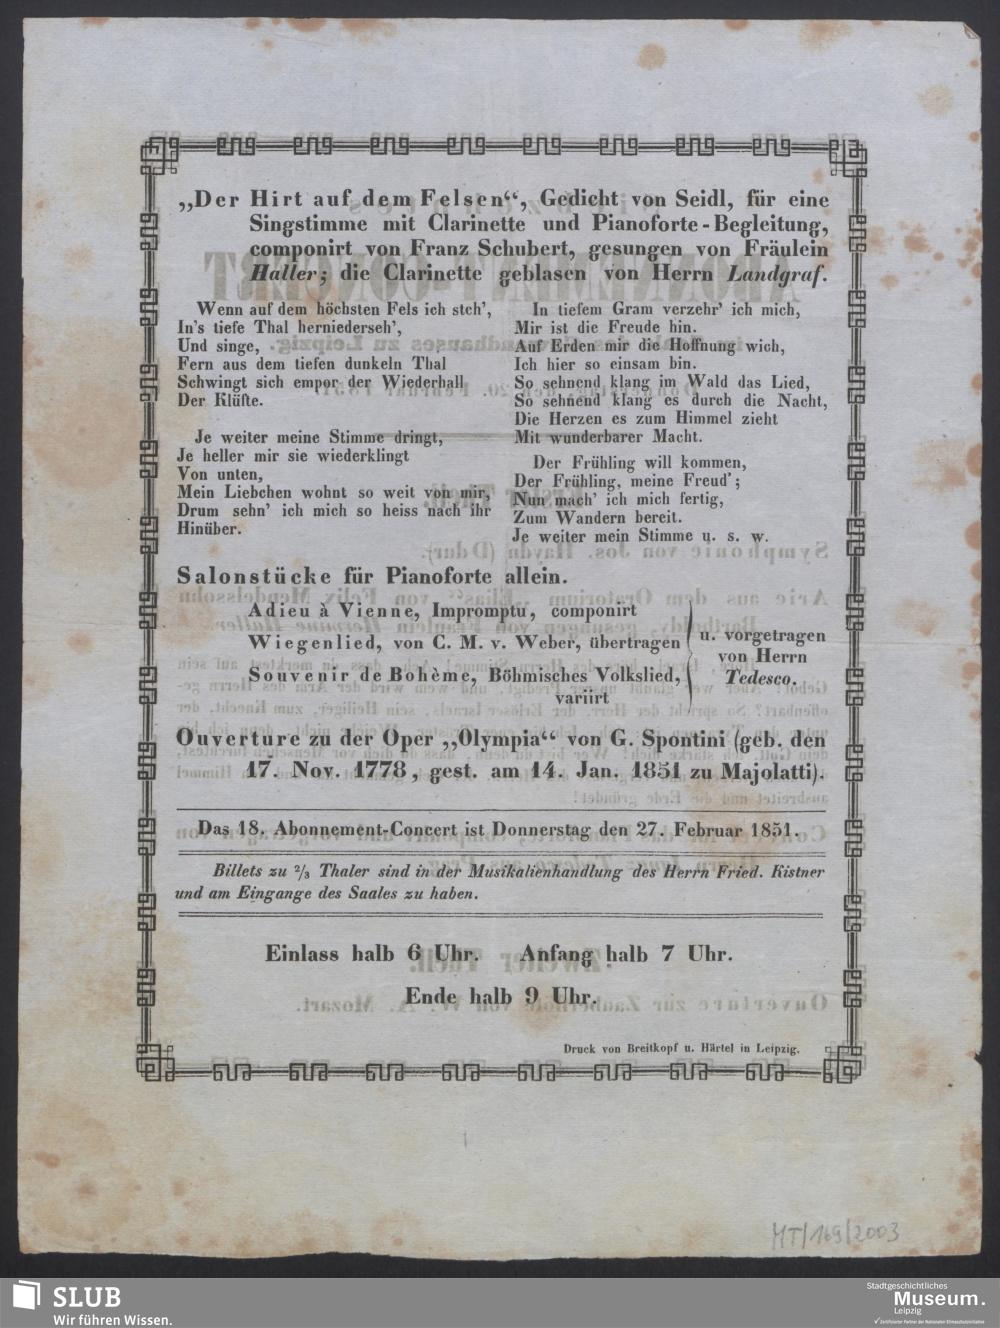 „Der Hirt auf dem Felsen“, Gedicht von Seidl, für eine
Singstimme mit Clarinette und Pianoforte-Begleitung,
componirt von Franz Schubert, gesungen von Fräulein
Haller; die Clarinette geblasen von Herrn Landgraf.
Wenn auf dem höchsten Fels ich steh',
In's tiefe Thal herniederseh',
Und singe,
Fern aus dem tiefen dunkeln Thal
Schwingt sich empor der Wiederhall
Der Klüfte.
Je weiter meine Stimme dringt,
Je heller mir sie wiederklingt
Von unten,
Mein Liebchen wohnt so weit von mir,
Drum sehn' ich mich so heiss nach ihr
Hinüber.
In tiefem Gram verzehr' ich mich,
Mir ist die Freude hin.
Auf Erden mir die Hoffnung wich,
Ich hier so einsam bin.
So sehnend klang im Wald das Lied,
So sehnend klang es durch die Nacht,
Die Herzen es zum Himmel zieht
Mit wunderbarer Macht.
Der Frühling will kommen,
Der Frühling, meine Freud';
Nun mach' ich mich fertig,
Zum Wandern bereit.
Je weiter mein Stimme u. s. w.
Salonstücke für Pianoforte allein.
Adieu à Vienne, Impromptu, componirt
Wiegenlied, von C. M. v. Weber, übertragen
Souvenir de Bohème, Böhmisches Volkslied,
variirt
u. vorgetragen
von Herrn
Tedesco.
Ouverture zu der Oper „Olympia“ von G. Spontini (geb. den
17. Nov. 1778, gest. am 14. Jan. 1851 zu Majolatti).
Das 18. Abonnement-Concert ist Donnerstag den 27. Februar 1851.
Billets zu 2/3 Thaler sind in der Musikalienhandlung des Herrn Fried. Kistner
und am Eingange des Saales zu haben.
Einlass halb 6 Uhr. Anfang halb 7 Uhr.
Ende halb 9 Uhr.
Druck von Breitkopf u. Härtel in Leipzig.
MT/169/2003
SLUB
Wir führen Wissen.
Stadtgeschichtliches
Museum.
Leipzig
Zertifizierter Partner der Nationalen Klimaschutzinitiative